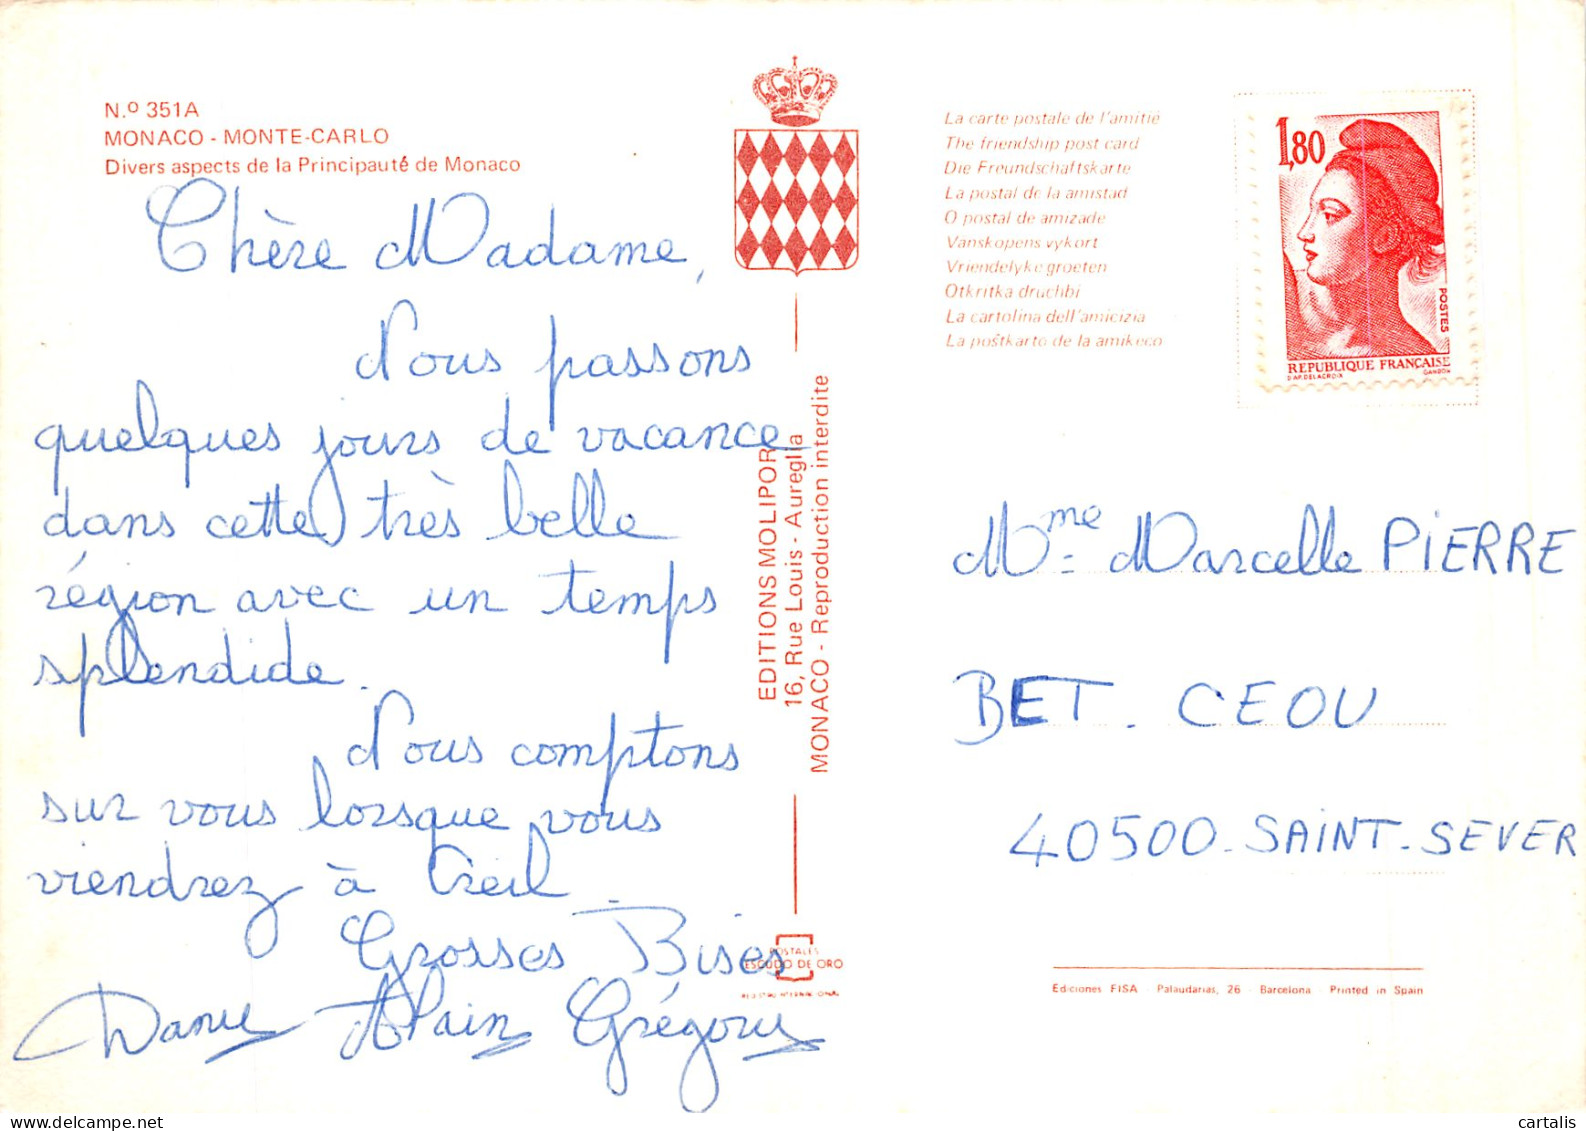 N.º 351A
MONACO - MONTE-CARLO
Divers aspects de la Principauté de Monaco
Chère Madame,
Nous passons
quelques jours de vacance
dans cette très belle
région avec un temps
splendide.
Nous comptons
sur vous lorsque vous
viendrez à Creil.
Grosses Bises
Dany Alain Grégory
EDITIONS MOLIPOR
16, Rue Louis - Aureglia
MONACO - Reproduction interdite
POSTALES
ESCUDO DE ORO
REGISTRO INTERNACIONAL
La carte postale de l'amitié
The friendship post card
Die Freundschaftskarte
La postal de la amistad
O postal de amizade
Vanskopens vykort
Vriendelyke groeten
Otkritka druchbi
La cartolina dell'amicizia
La poŝtkarto de la amikeco
1,80
POSTES
REPUBLIQUE FRANÇAISE
D'AP. DELACROIX GANDON
Mme Marcelle PIERRE
BET. CEOU
40500 - SAINT-SEVER
Ediciones FISA - Palaudarias, 26 - Barcelona - Printed in Spain
cartalis